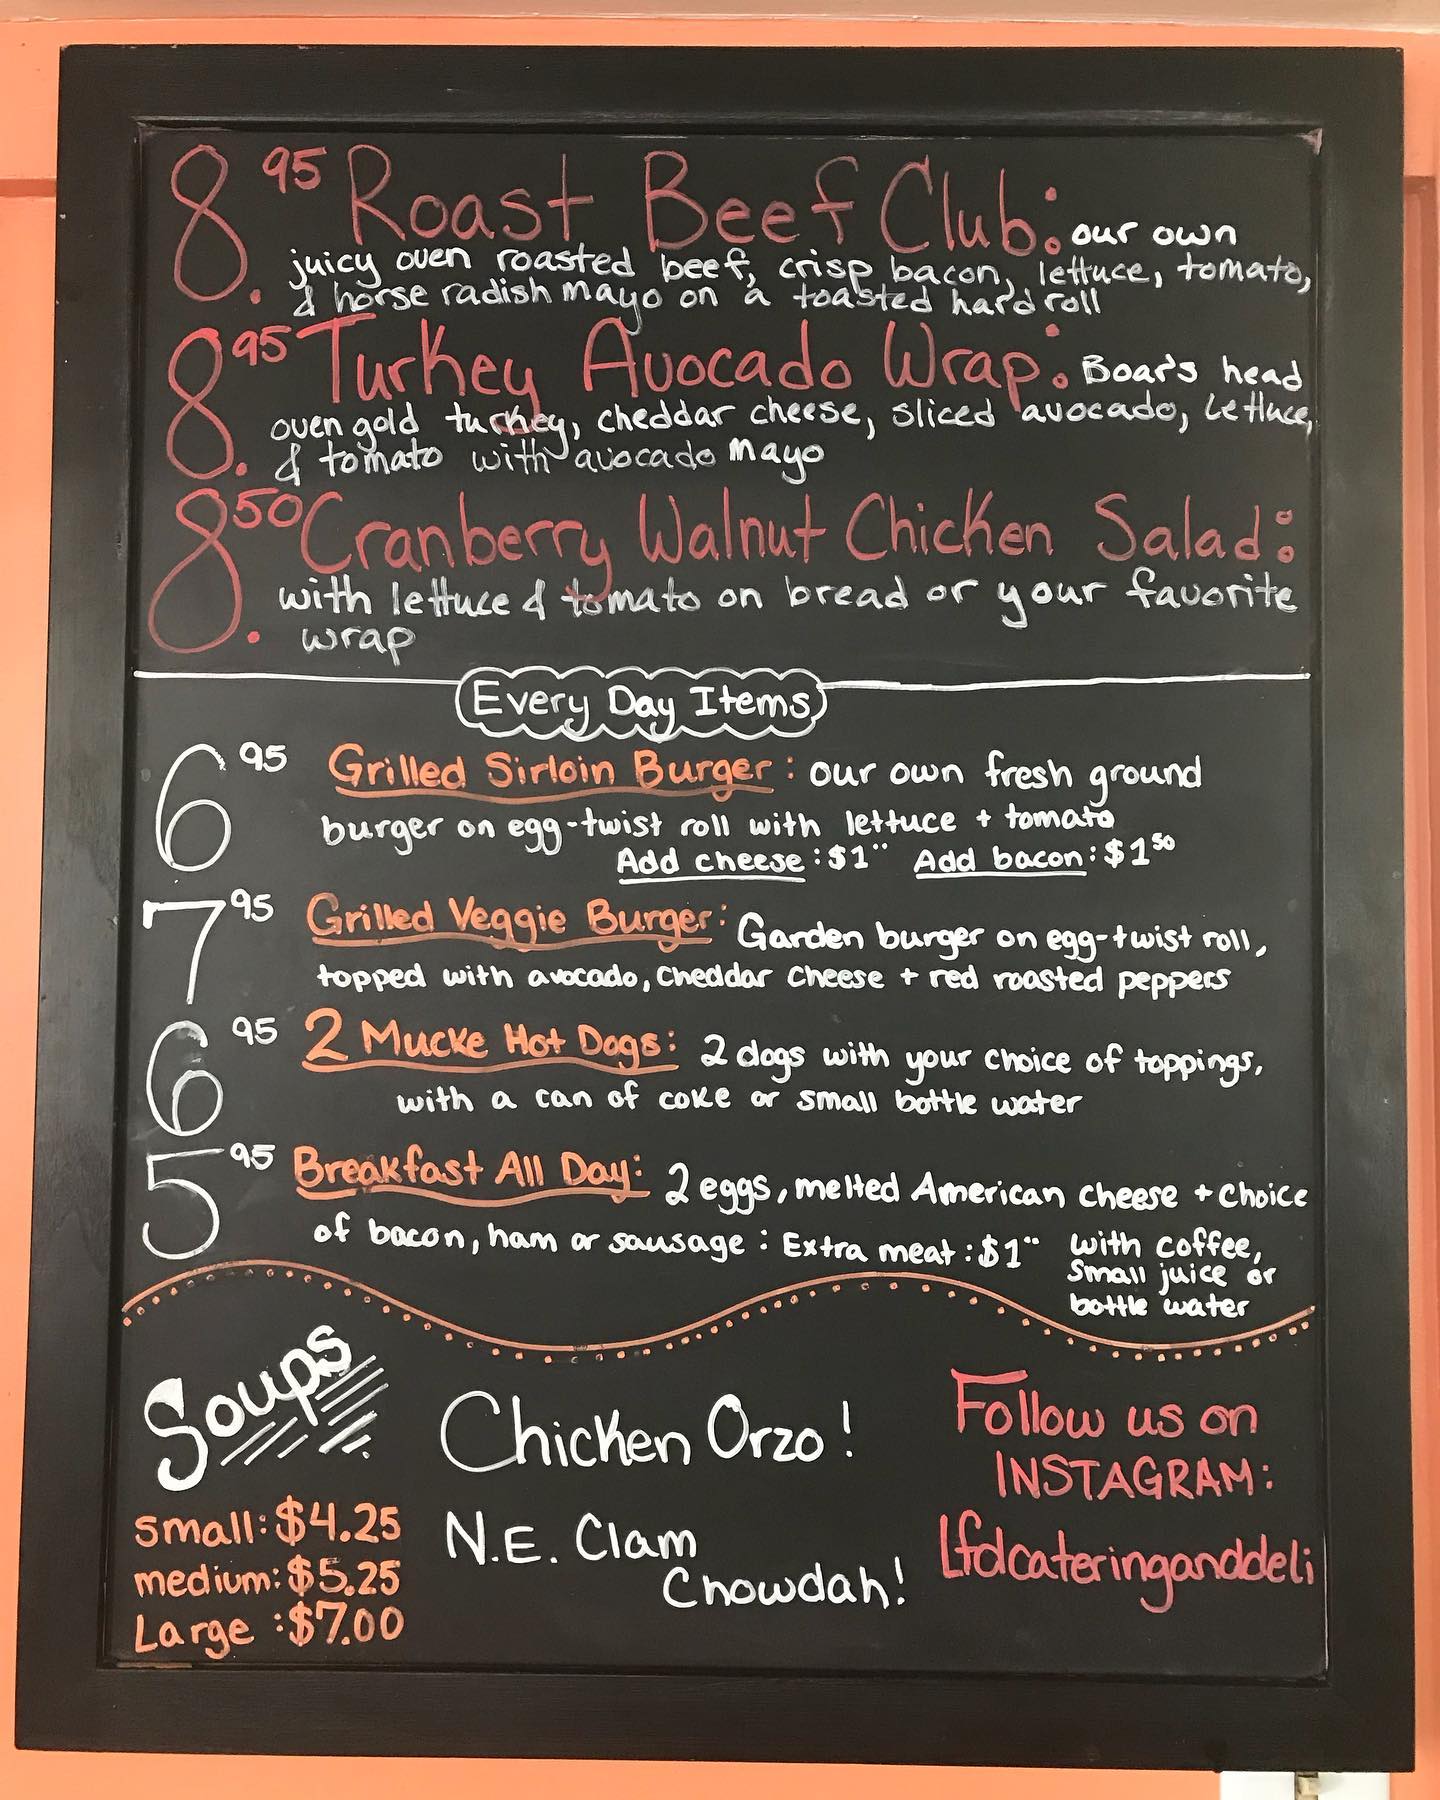 8.95 Roast Beef Club: our own
juicy oven roasted beef, crisp bacon, lettuce, tomato,
& horse radish mayo on a toasted hard roll
8.95 Turkey Avocado Wrap: Boar's head
oven gold turkey, cheddar cheese, sliced avocado, lettuce,
& tomato with avocado mayo
8.50 Cranberry Walnut Chicken Salad:
with lettuce & tomato on bread or your favorite
wrap
Every Day Items
6 95 Grilled Sirloin Burger: our own fresh ground
burger on egg-twist roll with lettuce + tomato
Add cheese: $1" Add bacon: $1 50
7 95 Grilled Veggie Burger: Garden burger on egg-twist roll,
topped with avocado, cheddar cheese + red roasted peppers
6 95 2 Mucke Hot Dogs: 2 dogs with your choice of toppings,
with a can of coke or small bottle water
5 95 Breakfast All Day: 2 eggs, melted American cheese + choice
of bacon, ham or sausage: Extra meat: $1" with coffee,
small juice or
bottle water
Soups
small: $4.25
medium: $5.25
Large: $7.00
Chicken Orzo!
N.E. Clam
Chowdah!
Follow us on
INSTAGRAM:
Lfdcateringanddeli